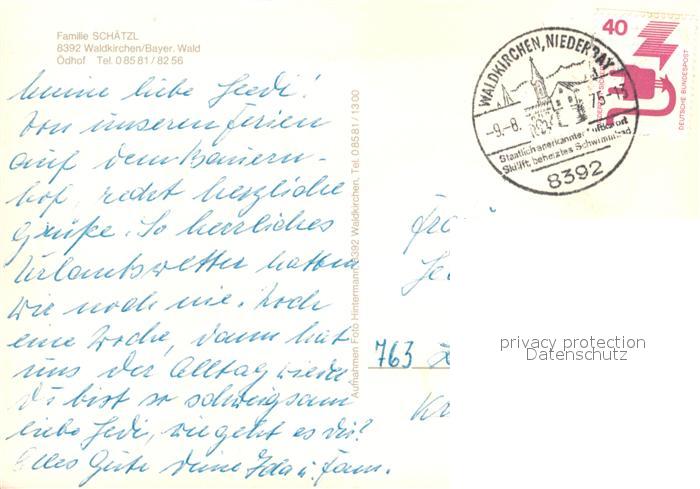 Familie SCHÄTZL
8392 Waldkirchen/Bayer. Wald
Ödhof Tel. 0 85 81 / 82 56
meine liebe Hedi!
Von unseren Ferien
auf dem Bauern-
hof, recht herzliche
Grüße. So herrliches
Urlaubswetter hatten
wir noch nie. Noch
eine Woche, dann hat
uns der Alltag wieder.
Du bist so schweigsam
liebe Hedi, wie geht es dir?
Alles Gute Deine Ida u. Fam.
Aufnahmen Foto Hintermann, 8392 Waldkirchen, Tel. 0 85 81 / 13 00
WALDKIRCHEN, NIEDERBAY.
-9.-8. 75-15
Staatlich anerkannter Luftkurort
Skilift, beheiztes Schwimmbad
8392
40
DEUTSCHE BUNDESPOST
763
privacy protection
Datenschutz